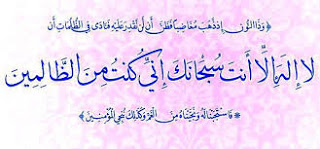 ﴿وَذَا النُّونِ إِذ ذَّهَبَ مُغَاضِبًا فَظَنَّ أَن لَّن نَّقْدِرَ عَلَيْهِ فَنَادَىٰ فِي الظُّلُمَاتِ أَن
لَا إِلَٰهَ إِلَّا أَنتَ سُبْحَانَكَ إِنِّي كُنتُ مِنَ الظَّالِمِينَ
فَاسْتَجَبْنَا لَهُ وَنَجَّيْنَاهُ مِنَ الْغَمِّ وَكَذَٰلِكَ نُنجِي الْمُؤْمِنِينَ﴾